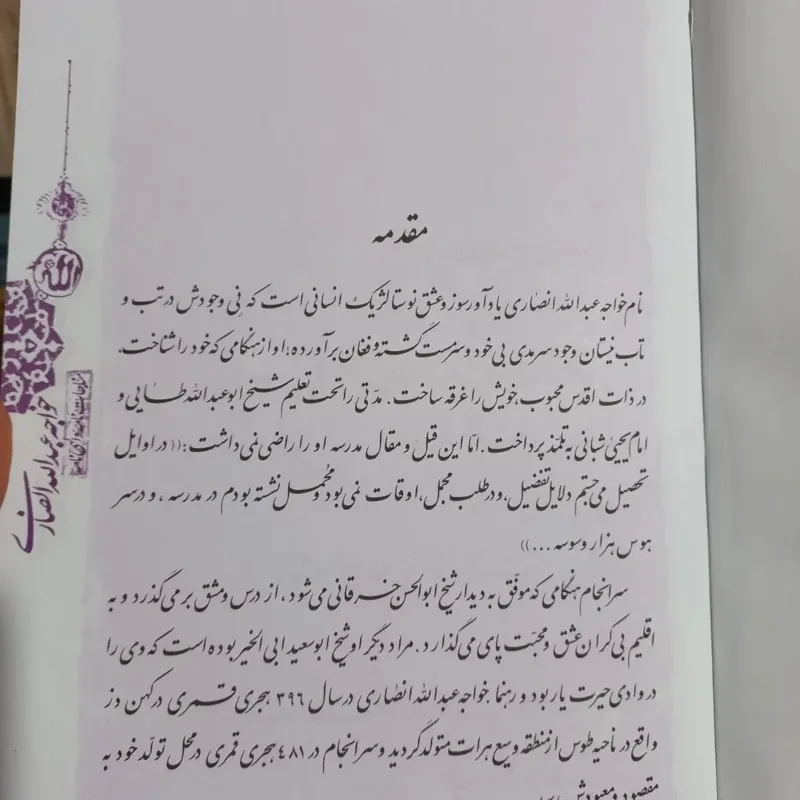 مقدمه
نام خواجه عبدالله انصاری یادآور سوز و عشق نوستالژیک انسانی است که نِی وجودش در تب و
تاب نیستان وجود سرمدی بی خود و سرمست گشته و فغان برآورده؛ او از هنگامی که خود را شناخت،
در ذات اقدس محبوب خویش را غرقه ساخت. مدّتی را تحت تعلیم شیخ ابوعبدالله طایی و
امام یحیی شبانی به تلمّذ پرداخت. امّا این قیل و مقال مدرسه او را راضی نمی داشت: ((در اوایل
تحصیل می جستم دلایل تفضیل، و در طلب مجمل، اوقات نمی بود و مُحمل نشسته بودم در مدرسه، و در سر
هوس هزار وسوسه ...))
سرانجام هنگامی که موفّق به دیدار شیخ ابوالحسن خرقانی می شود، از درس و مشق بر می گذرد و به
اقلیم بی کران عشق و محبّت پای می گذارد. مراد دیگر او شیخ ابوسعید ابی الخیر بوده است که وی را
در وادی حیرت یار بود و رهنما خواجه عبدالله انصاری در سال ۳۹۶ هجری قمری در کهن دژ
واقع در ناحیه طوس از منطقه وسیع هرات متولد گردید و سرانجام در ۴۸۱ هجری قمری در محل تولّد خود به
مقصود و معبودش
الله
خواجه عبدالله انصاری